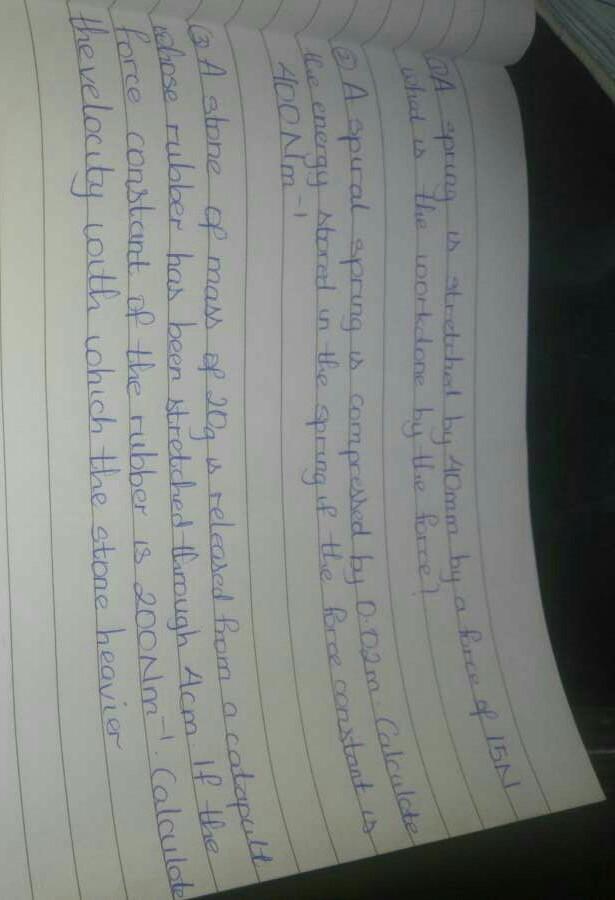 ① A spring is stretched by 40mm by a force of 15N
what is the workdone by the force?
② A spiral spring is compressed by 0.02m. Calculate
the energy stored in the spring if the force constant is
400Nm⁻¹
③ A stone of mass of 20g is released from a catapult
whose rubber has been stretched through 4cm. If the
force constant of the rubber is 200Nm⁻¹. Calculate
the velocity with which the stone heavier